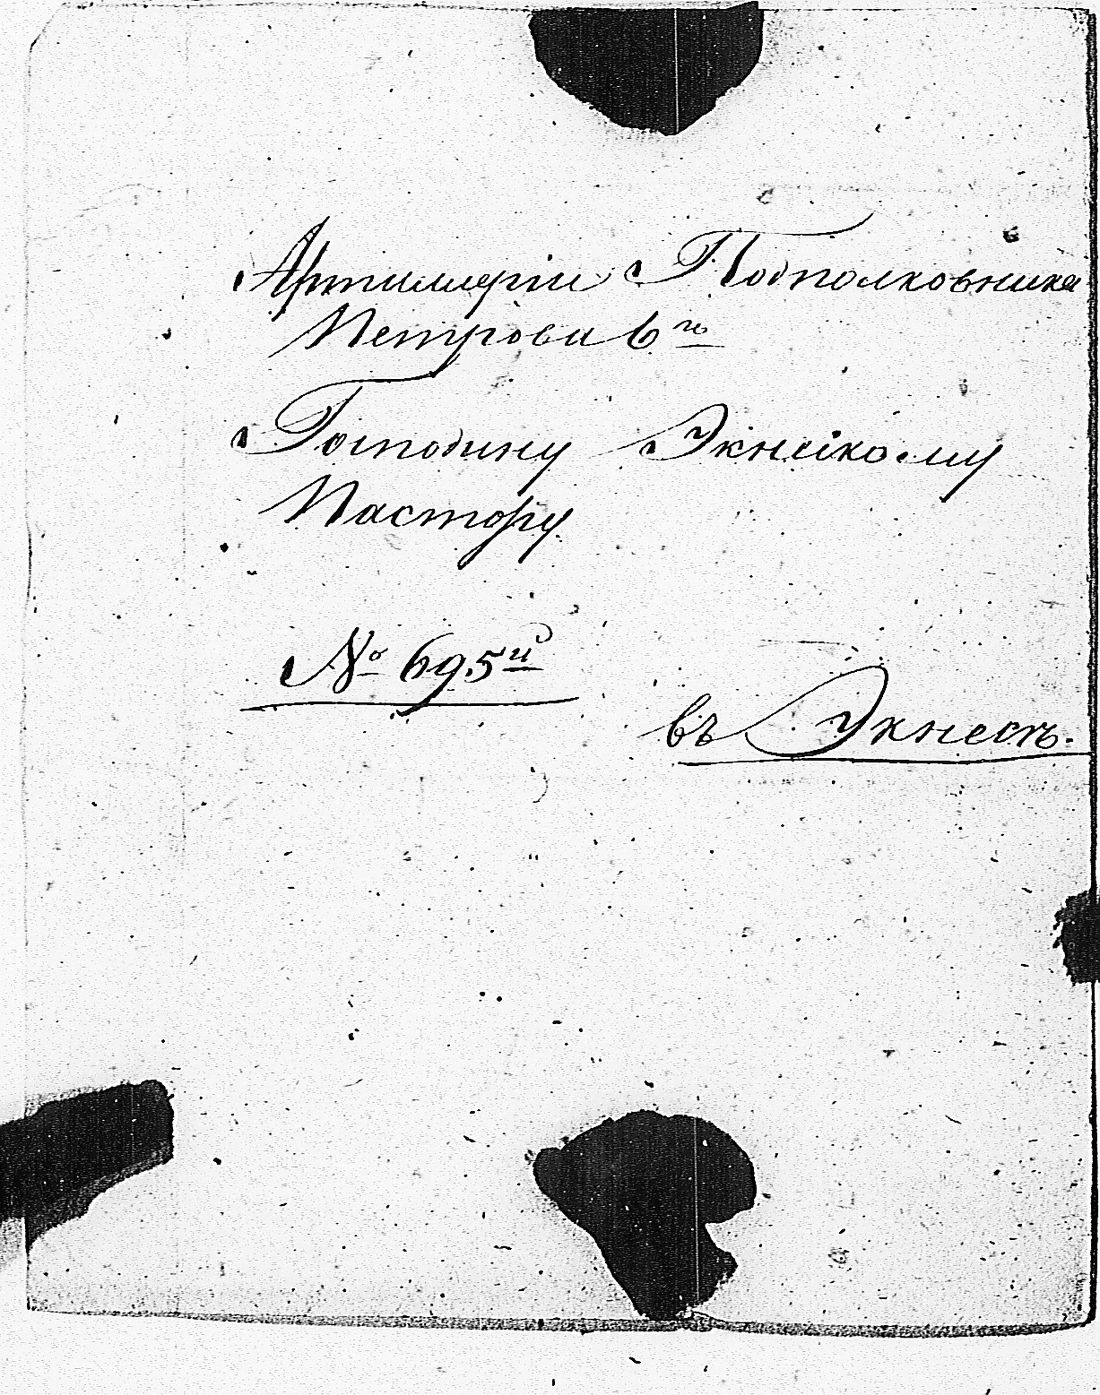 Артиллеріи Подполковника
Петрова 6го
Господину Экнескому
Пастору.
№ 695й
въ Экнесъ.